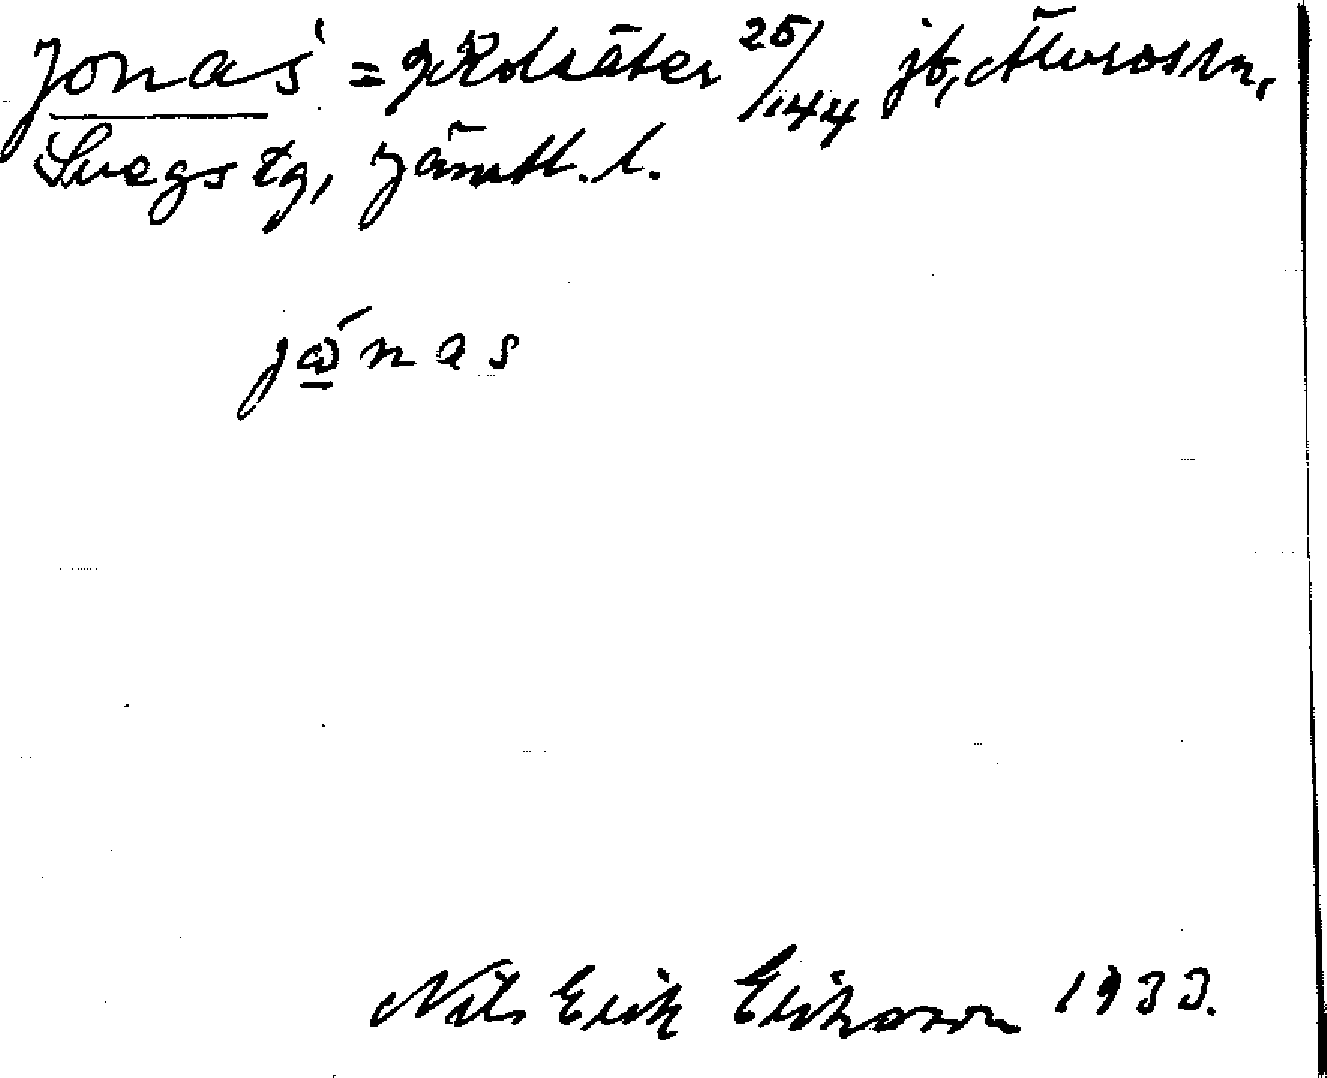 Jonas = g Kolsäter 25/144 jb, Älvros sn,
Svegs tg, Jämtl. l.
jώ̲nas
Nils Erik Eriksson 1933.